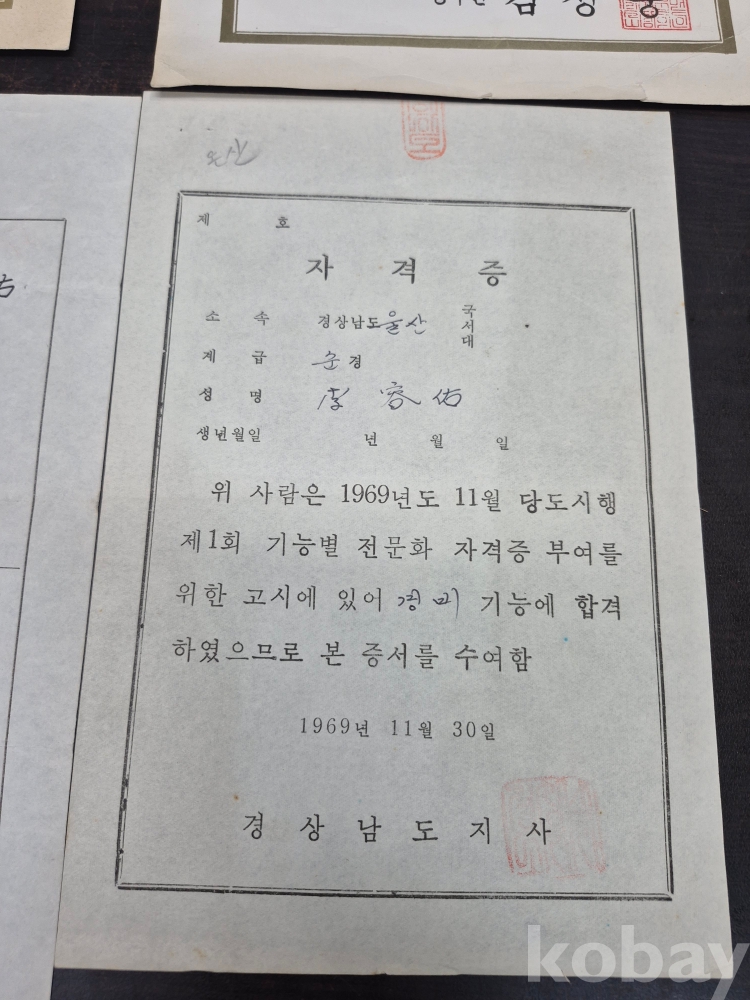 제 호
자 격 증
소 속 경상남도울산 국서대
계 급 순경
성 명 李 容 佑
생년월일 년 월 일
위 사람은 1969년도 11월 당도시행
제1회 기능별 전문화 자격증 부여를
위한 고시에 있어 경비 기능에 합격
하였으므로 본 증서를 수여함
1969년 11월 30일
경 상 남 도 지 사
kobay